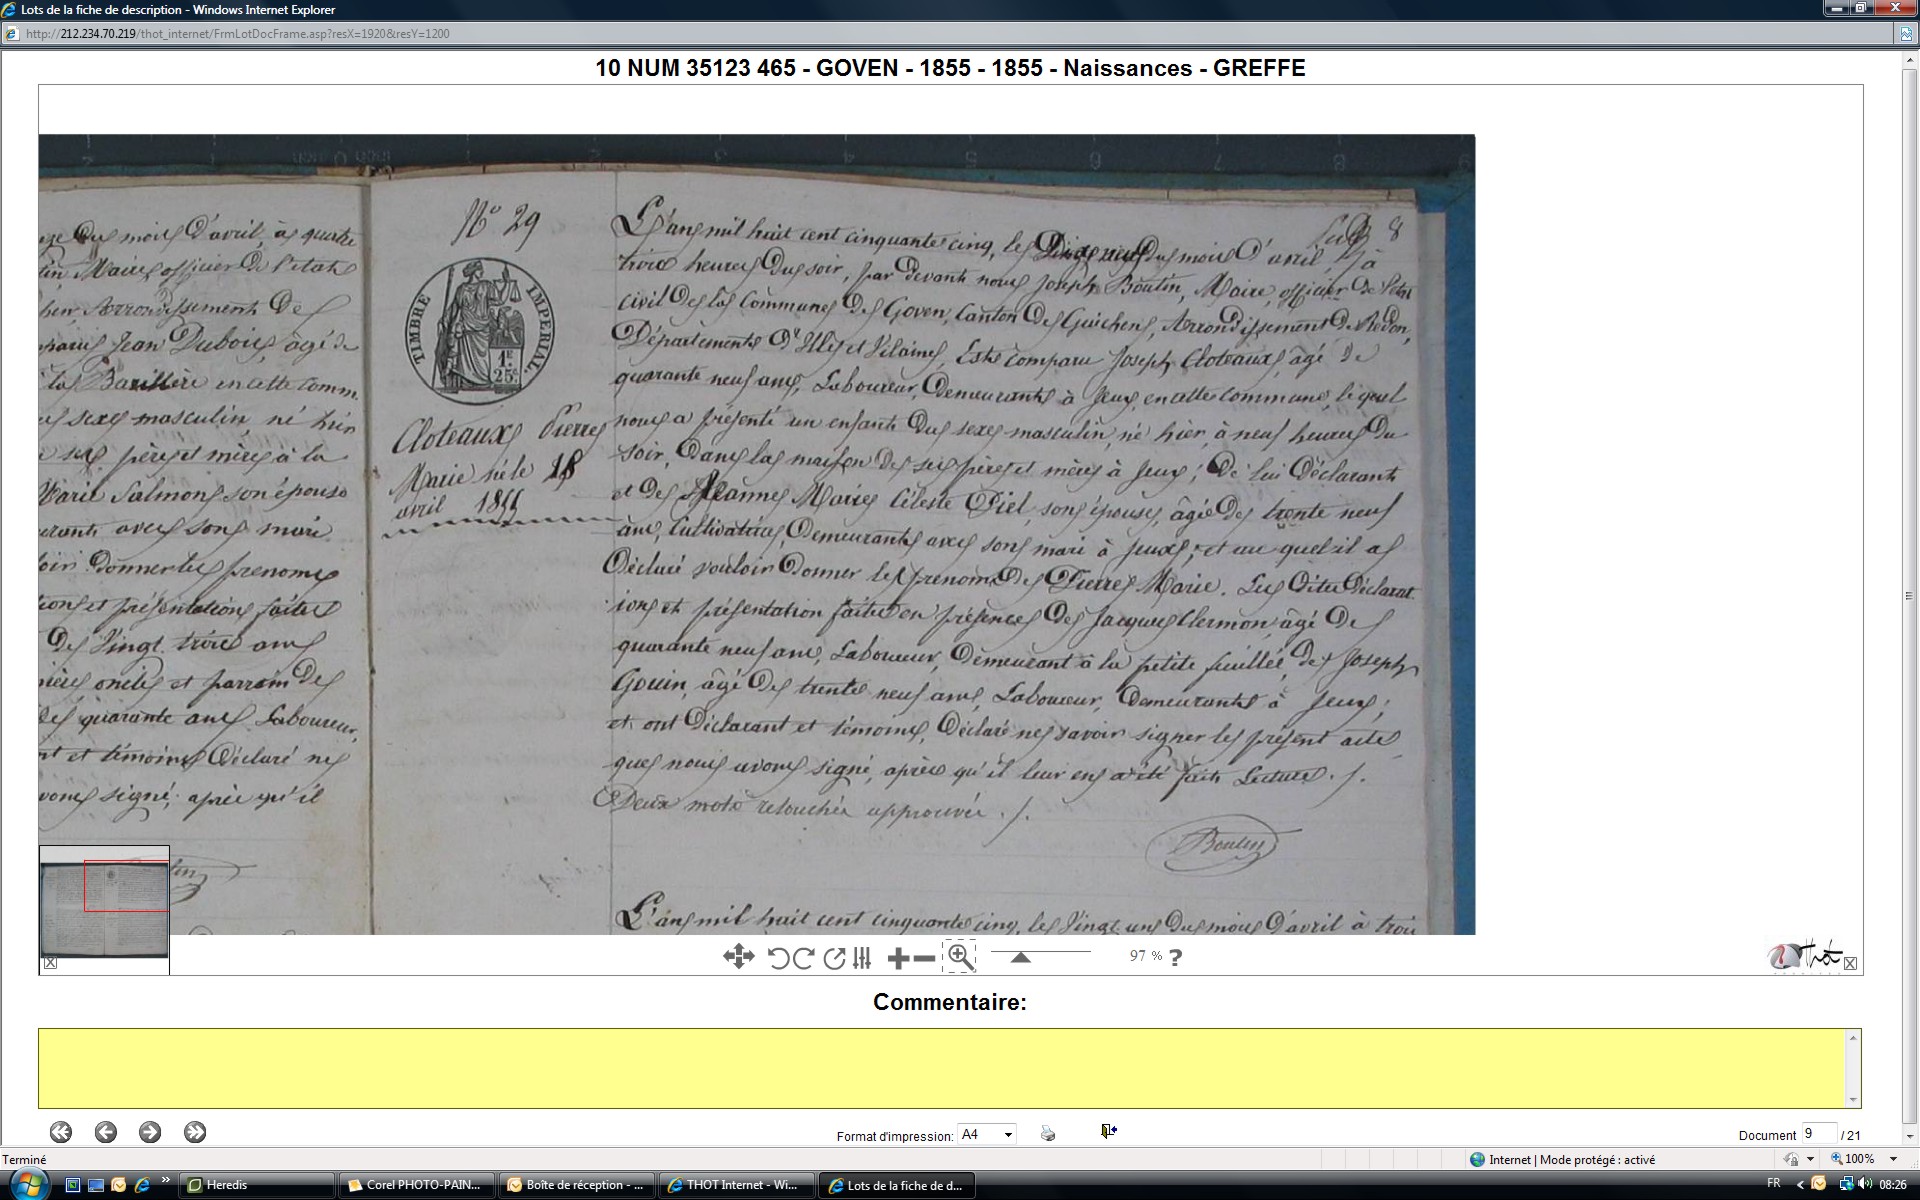 Lots de la fiche de description - Windows Internet Explorer
http://212.234.70.219/thot_internet/FrmLotDocFrame.asp?resX=1920&resY=1200
10 NUM 35123 465 - GOVEN - 1855 - 1855 - Naissances - GREFFE
du mois d'avril, à quatre
Maire officier de l'état
Arrondissement de
Jean Dubois, âgé de
la Barillère en cette comm.
sexe masculin, né hier
père et mère à la
Marie Salmon, son épouse
avec son mari
donner les prenoms
et présentation faites
de Vingt trois ans
oncle et parrain de
de quarante ans Laboureur,
et témoins Déclaré ne
avons signé, après qu'il
N° 29
TIMBRE IMPERIAL.
1F
25c
Cloteaux Pierre
Marie né le 18
avril 1855
8
L'an mil huit cent cinquante cinq, le Dix neuf du mois d'avril, à
trois heures du soir, par devant nous Joseph Boutin, Maire, officier de l'état
civil de la Commune de Goven, Canton de Guichen, Arrondissement de Redon,
Département d'Ille et Vilaine, Est comparu Joseph Cloteaux, âgé de
quarante neuf ans, Laboureur, Demeurant à Jeux, en cette commune, lequel
nous a présenté un enfant du sexe masculin, né hier, à neuf heures du
soir, dans la maison de ses père et mère à Jeux; De lui Déclarant
et de Jeanne Marie Céleste Piel, son épouse, âgée de trente neuf
ans, Cultivatrice, Demeurant avec son mari à Jeux; et au quel il a
Déclaré vouloir donner les prenoms de Pierre Marie. Les dites Déclarat
ion et présentation faites en présence de Jacques Clermon, âgé de
quarante neuf ans, Laboureur, Demeurant à la petite feuillée, de Joseph
Gouin, âgé de trente neuf ans, Laboureur, Demeurant à Jeux;
et ont Déclarant et témoins, Déclaré ne savoir signer le présent acte
que nous avons signé, après qu'il leur en a été fait Lecture ./.
Deux mots retouchés approuvés ./.
Boutin
L'an mil huit cent cinquante cinq, le Vingt un du mois d'avril à trois
97 % ?
Thot
Commentaire:
Format d'impression: A4
Document 9 / 21
Terminé
Internet | Mode protégé : activé
100%
Heredis
Corel PHOTO-PAIN...
Boîte de réception - ...
THOT Internet - Wi...
Lots de la fiche de d...
FR
08:26